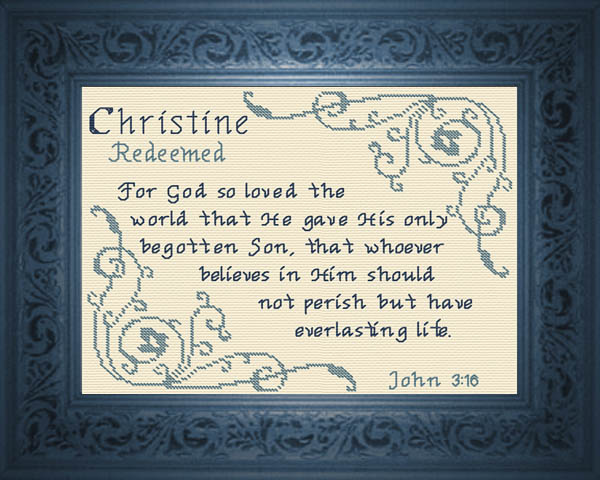 Christine
Redeemed
For God so loved the
world that He gave His only
begotten Son, that whoever
believes in Him should
not perish but have
everlasting life.
John 3:16